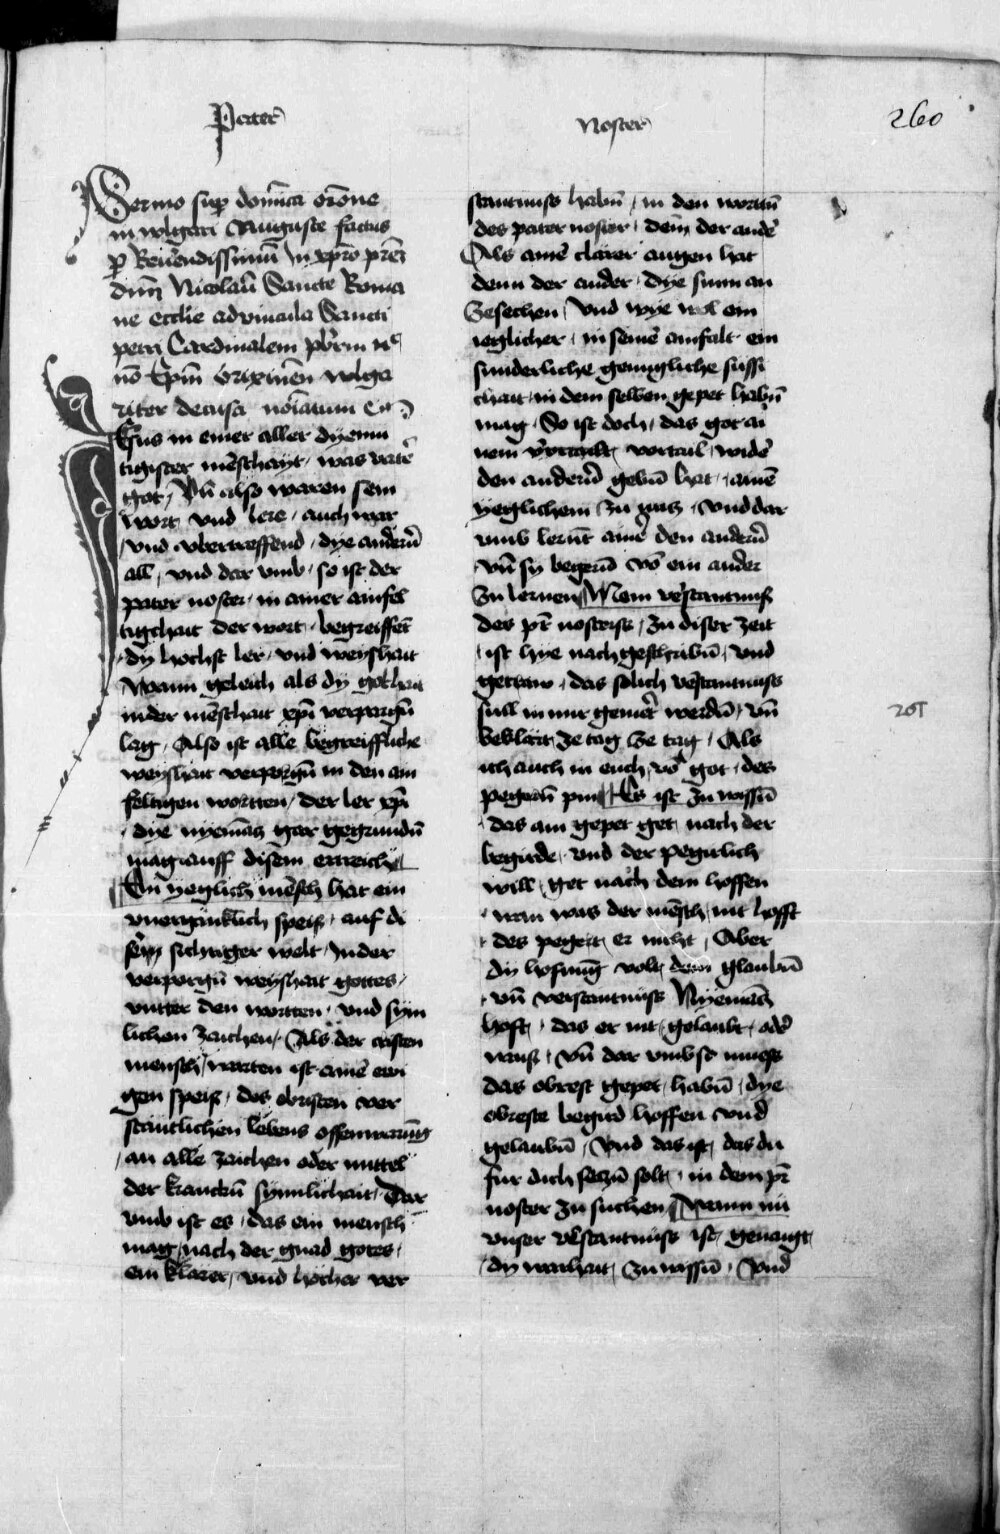 Pater
Noster
260
Sermo sup dominica oröne
in wlgari Auguste factus
p Reuendissimū in xpō prēm
dnm Nicolaū Sancte Roma
ne ecclie aduincula Sancti
petri Cardinalem pbrm nc
nō Epm brixinen wlga
riter decusa noiatum
Jhesus in einer aller dyemu
tigister mēschayt, was vatē
got, Vn also waren sein
wort vnd lere, auch war
vnd vbertreffend, dye anderū
all, vnd dar vmb, so ist der
pater noster, in ainer ainfel
tigchait der wort, begreiffet
dy hochst ler, vnd weyshait
Wann geleich als dy gothait
in der mēschait xpi verpargn
lag, Also ist alle begreiffliche
weyshait verporgn in den ain
feltigen wortten, der ler xpi
dye nyemācz gar gegrundn
mag, auff disem ertreich
Ein yeglich mēsch hat ein
vnergnklich speiß, auf di
ser sichtiger welt, In der
verporgn weyshait gottes,
vntter den wortten, vnd sym
lichen zaichen, Als der cristen
mensch, warten ist ainē ewi
gen speiß, des obristen ver
stantlichen lebens offenwarūg
an alle zaichen oder mittel
der kranckn synnlichait, Dar
vmb ist es, das ein mensch
mag, nach der gnad gotes,
ein klarer, vnd hocher ver
stantnuss habn, in den wortn
des pater noster, dem der andē
Als ainē clarer augen hat
denn der ander, dye sunn an
Zesechen, Vnd wye wol ein
ieglicher, in seinē ainfalt ein
sunderliche genügliche süssi
chait, in dem selben gepet habn
mag, So ist doch, das got ai
nem vortail, widē
den anderū gebn hat, ainē
yeglichem zu nutz, vnd dar
vmb lernt ainē den anderū
vn sy begern vō ein ander
zu lernen Mein vestantnuß
des pr nosters, zu diser zeit
ist hye nach geschribn, vnd
getraw, das solich vestantnuss
sull in mir gemert werdn, vn
beklart ze tag ze tag, Als
ich auch in euch, vō got, des
pegern pin Es ist zu wissn
das ain gepet get, nach der
begirde, vnd der pegirlich
will, get nach dem hoffen
wan was der mēsch, nit hofft
des pegert er nicht, Aber
dy hofnūg volt, dem glaubn
vn verstantnuss Nyemācz
hoft, das er nit, gelaubt, odē
waiß, vn dar vmb so muess
das obrest gepet, habn, dye
obreste begird hoffen vnd
gelaubn, Vnd das ist, das du
fur dich seczn solt, in dem pr
noster zu suchen Wann nu
vnser vestantnuss ist, genaigt,
dy warhait, zu wissn, Vnd
201